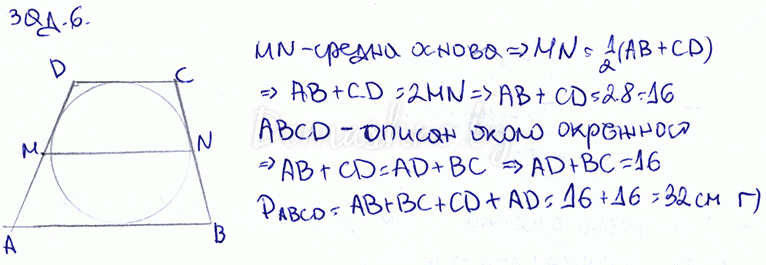 Зад. 6.
D C
M N
A B
MN - средна основа ⇒ MN = 1/2 (AB + CD)
⇒ AB + CD = 2MN ⇒ AB + CD = 2.8 = 16
ABCD - описан около окръжност
⇒ AB + CD = AD + BC ⇒ AD + BC = 16
P ABCD = AB + BC + CD + AD = 16 + 16 = 32 см г)